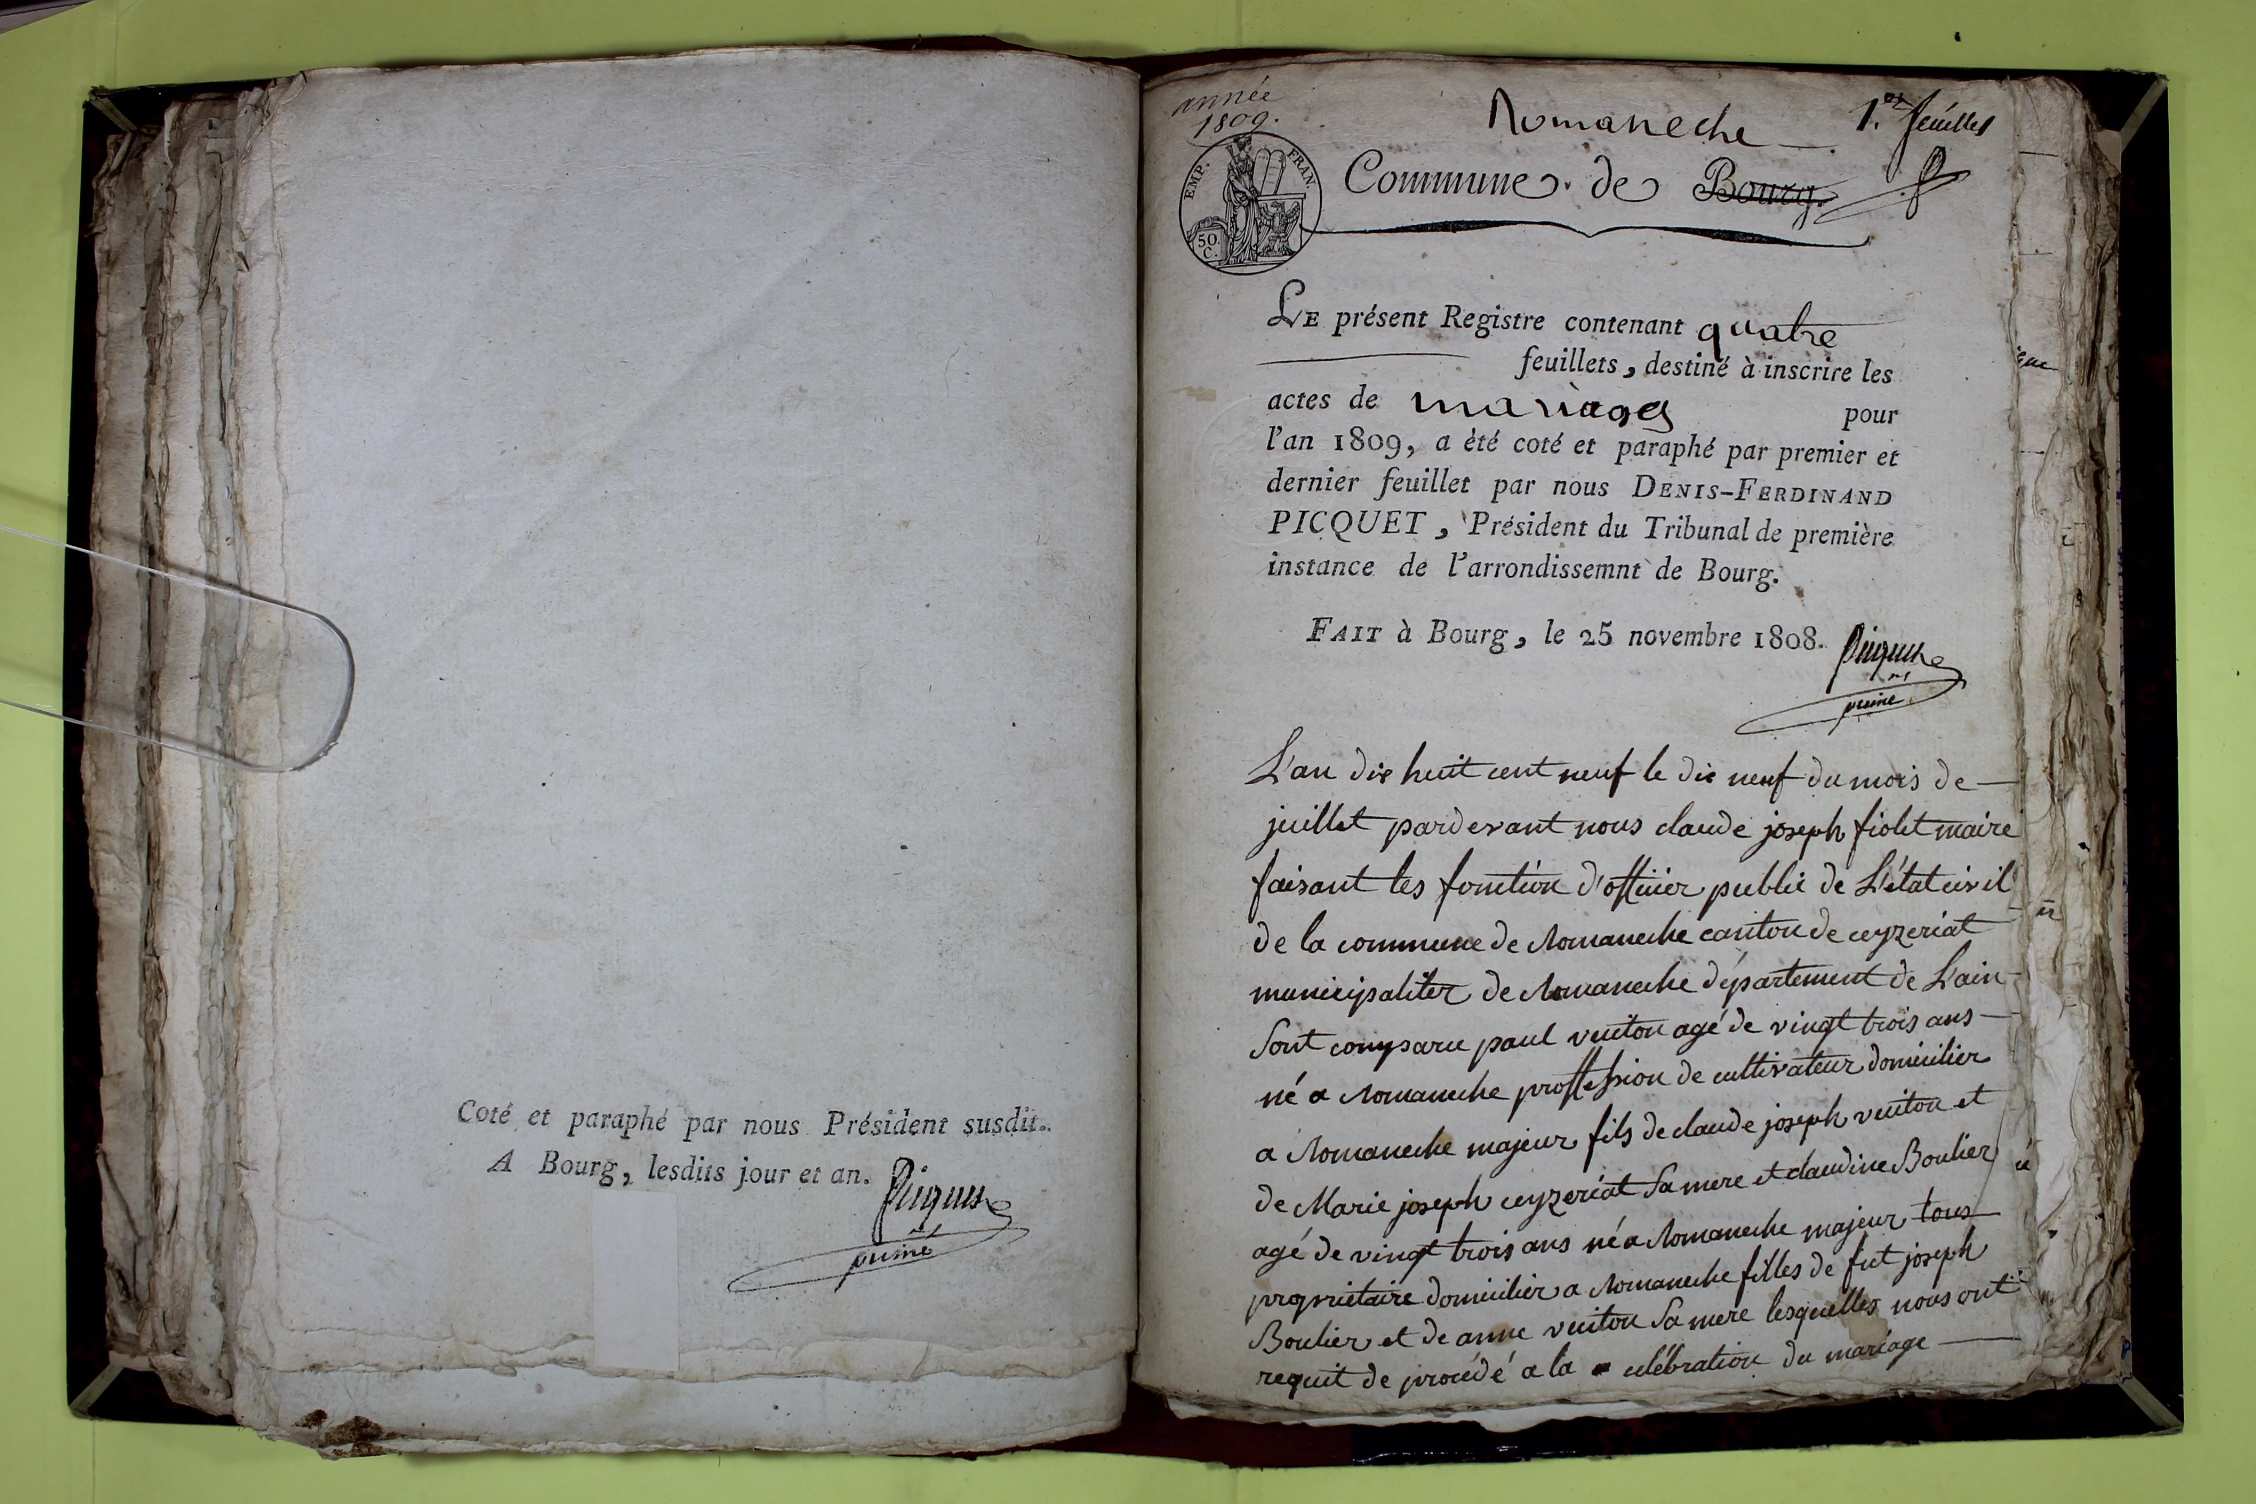 Coté et paraphé par nous Président susdit.
A Bourg, lesdits jour et an.
Picquet
ainé
année
1809.
Romaneche
1.er feuillet
EMP. FRAN.
50
C.
Commune de Bourg.
LE présent Registre contenant quatre
feuillets, destiné à inscrire les
actes de mariages pour
l'an 1809, a èté coté et paraphé par premier et
dernier feuillet par nous DENIS-FERDINAND
PICQUET, Président du Tribunal de première
instance de l'arrondissemnt de Bourg.
FAIT à Bourg, le 25 novembre 1808.
Picquet
ainé
L'an dix huit cent neuf le dix neuf du mois de
juillet pardevant nous claude joseph fiolet maire
faisant les fonction d'officier public de L'état civil
de la commune de Romaneche canton de ceyzeriat
municipaliter de Romaneche département de L'ain
Sont comparu paul vuiton agé de vingt trois ans
né a Romaneche proffession de cultivateur domicilier
a Romaneche majeur fils de claude joseph vuiton et
de Marie joseph ceyzeriat Sa mere et claudine Boulier
agé de vingt trois ans né a Romaneche majeur tous
propriétaire domicilier a Romaneche filles de fut joseph
Boulier et de anne vuiton Sa mere lesquelles nous ont
requit de procédé a la célébration du mariage